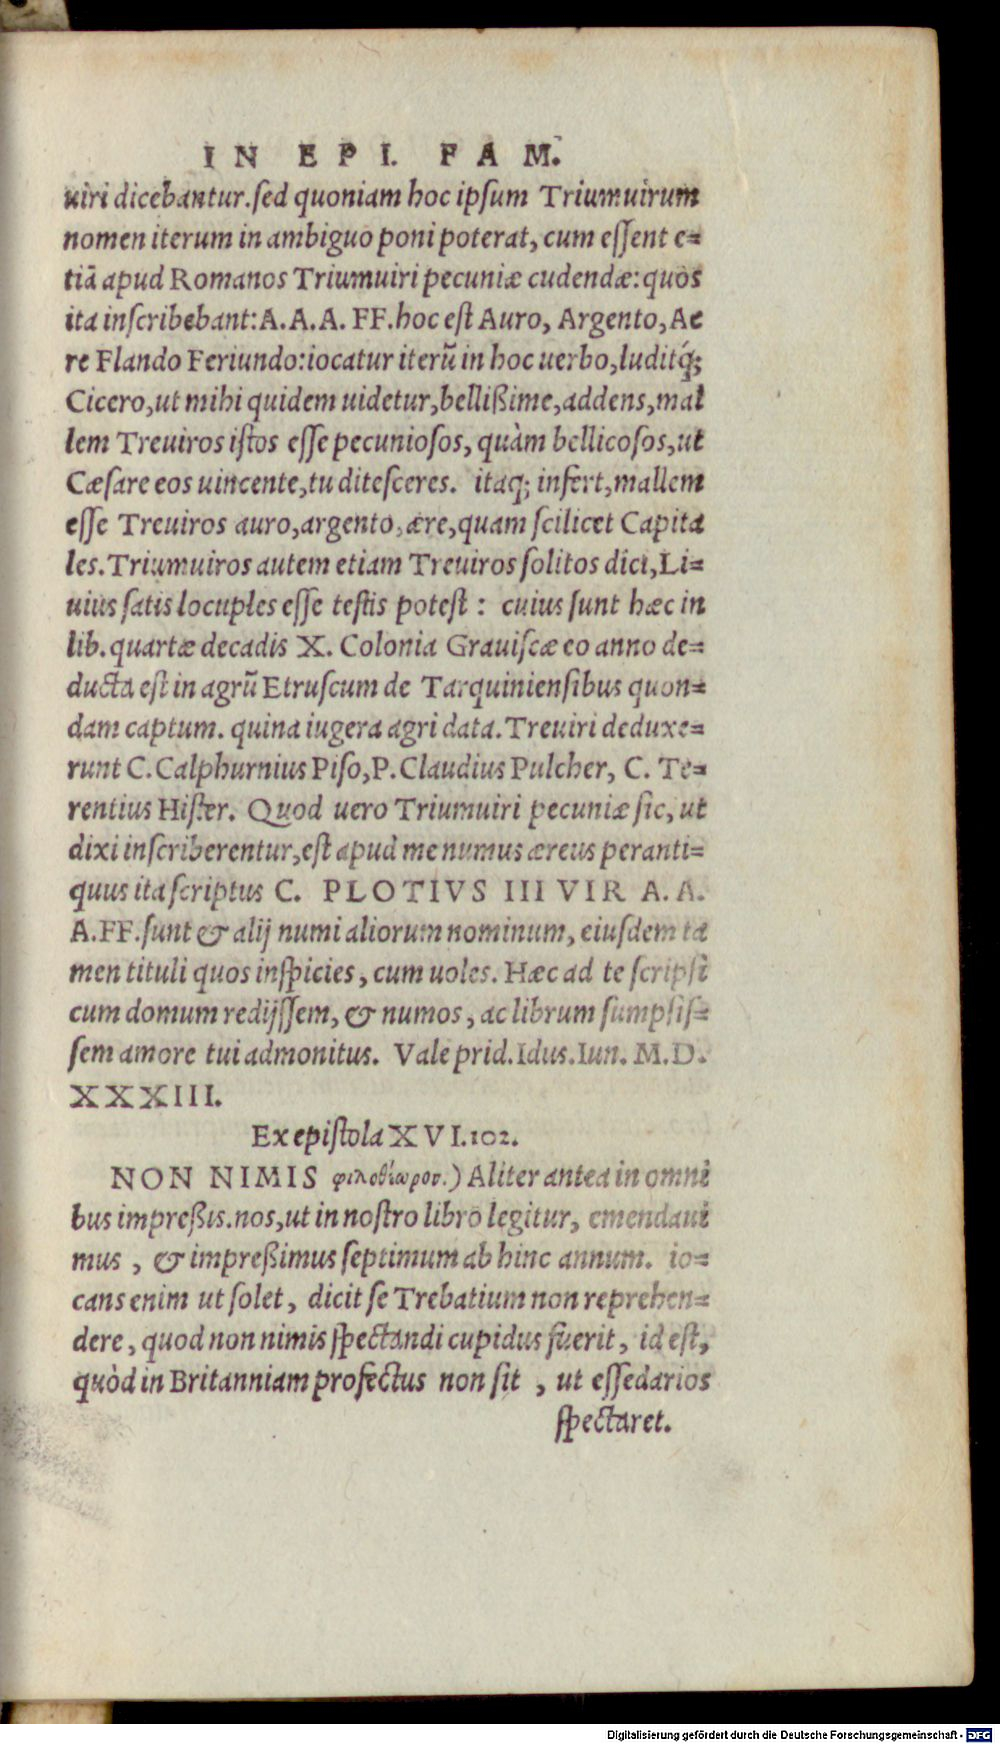 IN EPI. FAM.
uiri dicebantur. sed quoniam hoc ipsum Triumuirum
nomen iterum in ambiguo poni poterat, cum essent e=
tiã apud Romanos Triumuiri pecuniæ cudendæ: quos
ita inscribebant: A. A. A. FF. hoc est Auro, Argento, Ae
re Flando Feriundo: iocatur iterũ in hoc uerbo, luditq́;
Cicero, ut mihi quidem uidetur, bellißime, addens, mal
lem Treuiros istos esse pecuniosos, quàm bellicosos, ut
Cæsare eos uincente, tu ditesceres. itaq; infert, mallem
esse Treuiros auro, argento, ære, quam scilicet Capita
les. Triumuiros autem etiam Treuiros solitos dici, Li=
uius satis locuples esse testis potest: cuius sunt hæc in
lib. quartæ decadis X. Colonia Grauiscæ eo anno de=
ducta est in agrũ Etruscum de Tarquiniensibus quon=
dam captum. quina iugera agri data. Treuiri deduxe=
runt C. Calphurnius Piso, P. Claudius Pulcher, C. Te=
rentius Hister. Quod uero Triumuiri pecuniæ sic, ut
dixi inscriberentur, est apud me numus æreus peranti=
quus ita scriptus C. PLOTIVS III VIR A. A.
A. FF. sunt & alij numi aliorum nominum, eiusdem ta
men tituli quos inspicies, cum uoles. Hæc ad te scripsi
cum domum redijssem, & numos, ac librum sumpsis=
sem amore tui admonitus. Vale prid. Idus. Iun. M. D.
XXXIII.
Ex epistola XVI. 102.
NON NIMIS φιλοθέωρον.) Aliter antea in omni
bus impreßis. nos, ut in nostro libro legitur, emendaui
mus, & impreßimus septimum ab hinc annum. io=
cans enim ut solet, dicit se Trebatium non reprehen=
dere, quod non nimis spectandi cupidus fuerit, id est,
quòd in Britanniam profectus non sit, ut essedarios
spectaret.
Digitalisierung gefördert durch die Deutsche Forschungsgemeinschaft - DFG